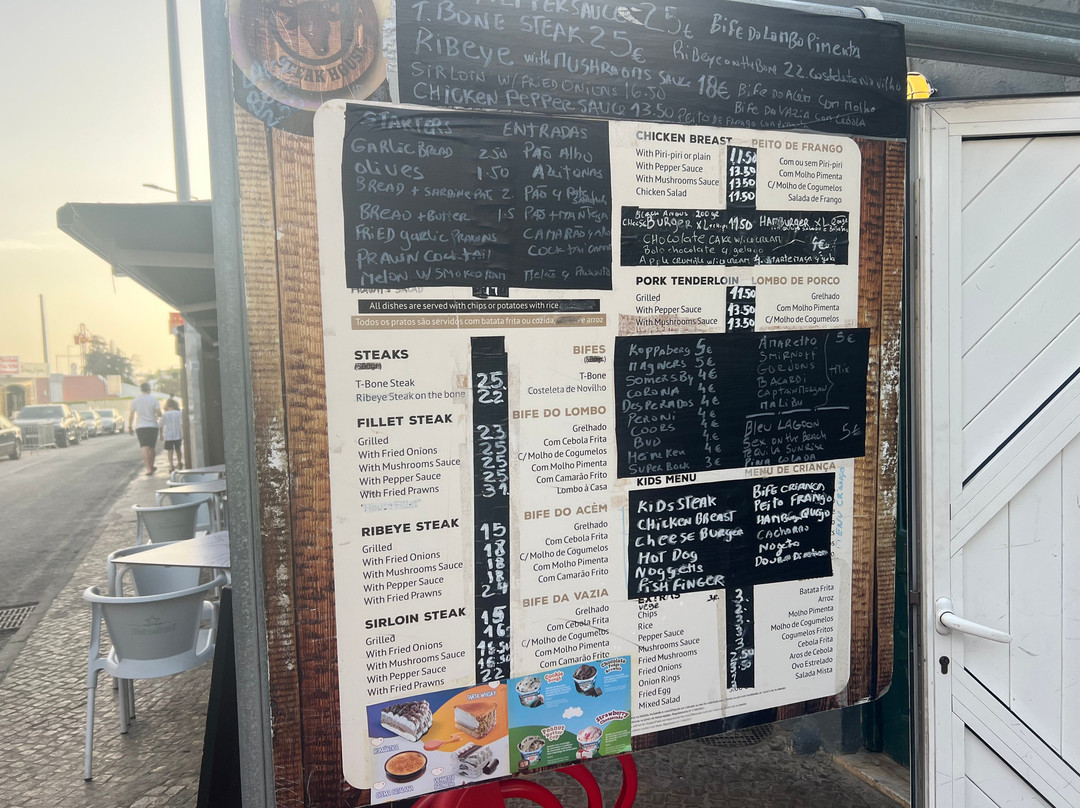 STEAK HOUSE
PEPPER SAUCE 25€ BIFE DO LOMBO PIMENTA
T.BONE STEAK 25€
RIBEYE with MUSHROOMS SAUCE 18€
Ribeye on the Bone 22. Costeleta novilho
SIRLOIN W/FRIED ONIONS 16.50 BIFE DO ACÉM com Molho
CHICKEN PEPPER SAUCE 13.50 BIFE DA VAZIA com CEBOLA
STARTERS ENTRADAS
GARLIC BREAD 2.50 PÃO ALHO
OLIVES 1.50 AZEITONAS
BREAD + SARDINE PAT 2
BREAD + BUTTER 1.5 PÃO + MANTEIGA
FRIED garlic PRAWNS
PRAWN COCKTAIL
MELON W/ SMOKED HAM MELÃO
All dishes are served with chips or potatoes with rice
Todos os pratos são servidos com batata frita ou cozida, arroz
STEAKS BIFES
T-Bone Steak 25. T-Bone
Ribeye Steak on the bone 22 Costeleta de Novilho
FILLET STEAK BIFE DO LOMBO
Grilled 23 Grelhado
With Fried Onions 25 Com Cebola Frita
With Mushrooms Sauce 25 C/ Molho de Cogumelos
With Pepper Sauce 25 Com Molho Pimenta
With Fried Prawns 31 Com Camarão Frito
"House Fillet" Lombo à Casa
RIBEYE STEAK BIFE DO ACÉM
Grilled 15 Grelhado
With Fried Onions 18 Com Cebola Frita
With Mushrooms Sauce 18 C/ Molho de Cogumelos
With Pepper Sauce 18 Com Molho Pimenta
With Fried Prawns 24 Com Camarão Frito
SIRLOIN STEAK BIFE DA VAZIA
Grilled 15 Grelhado
With Fried Onions 16.50 Com Cebola Frita
With Mushrooms Sauce 16.50 C/ Molho de Cogumelos
With Pepper Sauce 16.50 Com Molho Pimenta
With Fried Prawns 22 Com Camarão Frito
CHICKEN BREAST PEITO DE FRANGO
With Piri-piri or plain 11.50 Com ou sem Piri-piri
With Pepper Sauce 13.50 Com Molho Pimenta
With Mushrooms Sauce 13.50 C/ Molho de Cogumelos
Chicken Salad 11.50 Salada de Frango
Black Angus 200gr
CHEESEBURGER XL+chips 11.50 HAMBURGER XL
CHOCOLATE CAKE w/icecream 4€
Bolo chocolate q/ gelado
Apple crumble w/icecream 4.
PORK TENDERLOIN LOMBO DE PORCO
Grilled 11.50 Grelhado
With Pepper Sauce 13.50 Com Molho Pimenta
With Mushrooms Sauce 13.50 C/ Molho de Cogumelos
Koppaberg 5€
Magners 5€
SOMERSBY 4€
CORONA 4€
DESPERADOS 4€
PERONI 4€
COORS 4€
BUD 4€
Heineken 4€
SUPER BOCK 3€
AMARETTO 5€
SMIRNOFF
GORDONS
BACARDI +Mix
CAPTAIN MORGAN
MALIBU
BLEU LAGOON
SEX ON THE BEACH 5€
TEQUILA SUNRISE
PINA COLADA
KIDS MENU MENU DE CRIANÇA
KIDS STEAK BIFE CRIANÇA
CHICKEN BREAST PEITO FRANGO
CHEESE BURGER HAMBURG QUEIJO
HOT DOG CACHORRO
NOGGETS
FISH FINGER
EXTRAS
vege 3€
Chips 3. Batata Frita
Rice Arroz
Pepper Sauce Molho Pimenta
Mushrooms Sauce Molho de Cogumelos
Fried Mushrooms Cogumelos Fritos
Fried Onions Cebola Frita
Onion Rings Aros de Cebola
Fried Egg Ovo Estrelado
Mixed Salad Salada Mista
TARTA WHISKY
Strawberry Cheesecake
Peanut Butter Cup